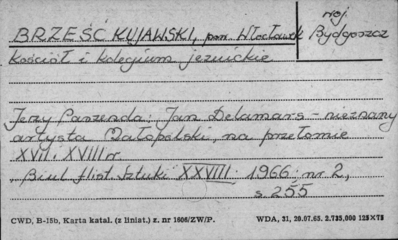 BRZEŚĆ KUJAWSKI, pow. Włocławek
woj. Bydgoszcz
Kościół i kolegium jezuickie
Jerzy Paszenda: Jan Delamars - nieznany
artysta Małopolski, na przełomie
XVII i XVIII w.
Biul. Hist. Sztuki XXVIII 1966, nr 2,
s. 255
CWD, B-15b, Karta katal. (z liniat.) z. nr 1606/ZW/P. WDA, 21, 20.07.65. 2.735,000 125X75